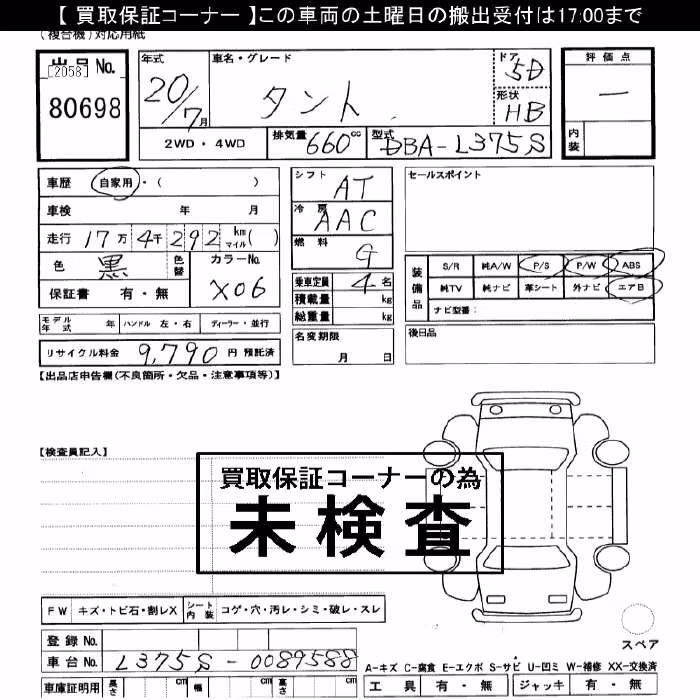 【 買取保証コーナー 】この車両の土曜日の搬出受付は17:00まで
(複合機)対応用紙
出品 No.
[2058]
80698
年式
20/7月
車名・グレード
タント
ドア
5D
形状
HB
評価点
ー
内装
2WD ・ 4WD
排気量 660 cc
型式 DBA-L375S
車歴 自家用 ・( )
車検 年 月
走行 17万 4千 292 km マイル( )
色 黒 色替 カラーNo. X06
保証書 有・無
シフト AT
冷房 AAC
燃料 G
乗車定員 4 名
積載量 kg
総重量 kg
セールスポイント
装備品
S/R 純A/W P/S P/W ABS
純TV 純ナビ 革シート 外ナビ エアB
ナビ型番:
モデル年式 年 ハンドル 左・右 ディーラー・並行
名変期限
月 日
後日品
リサイクル料金 9,790 円 預託済
【出品店申告欄(不良箇所・欠品・注意事項等)】
【検査員記入】
買取保証コーナーの為
未検査
FW キズ・トビ石・割レX シート内装 コゲ・穴・汚レ・シミ・破レ・スレ
スペア
登録 No.
車台 No. L375S-0089588
A-キズ C-腐食 E-エクボ S-サビ U-凹ミ W-補修 XX-交換済
車庫証明用 長さ cm 幅 cm 高さ cm
工具 有・無 ジャッキ 有・無